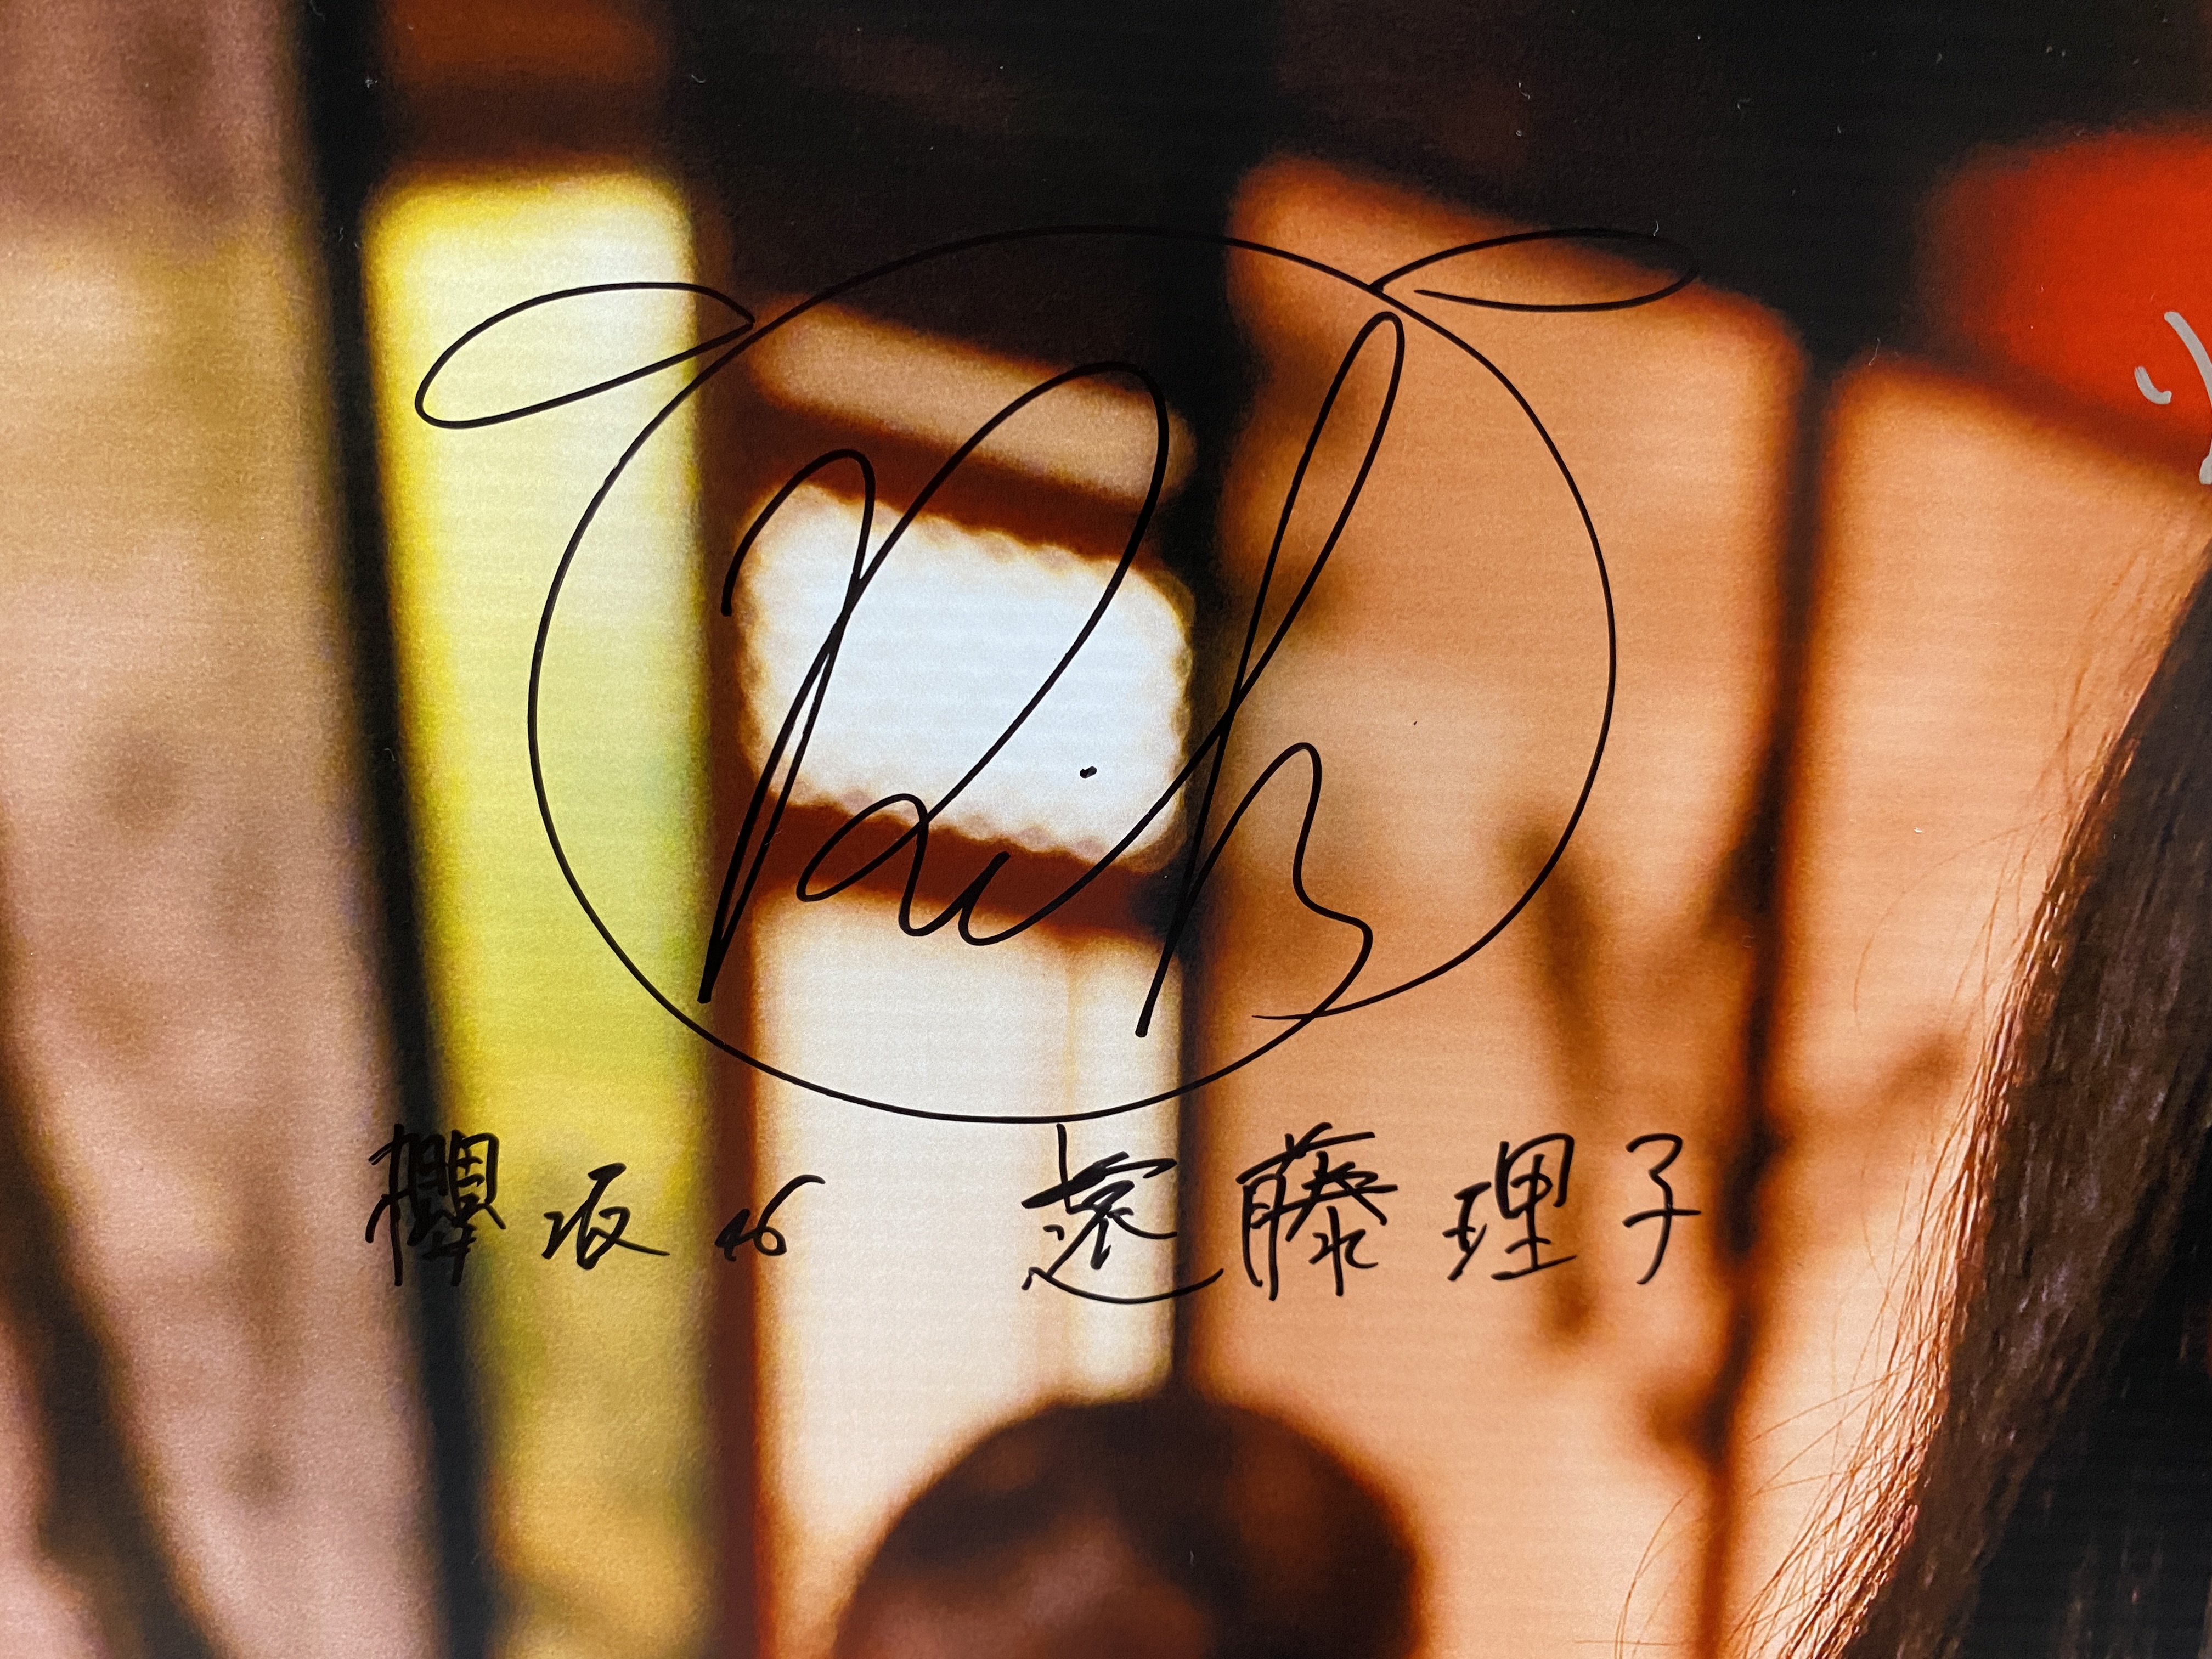 Rik
櫻坂46 遠藤理子